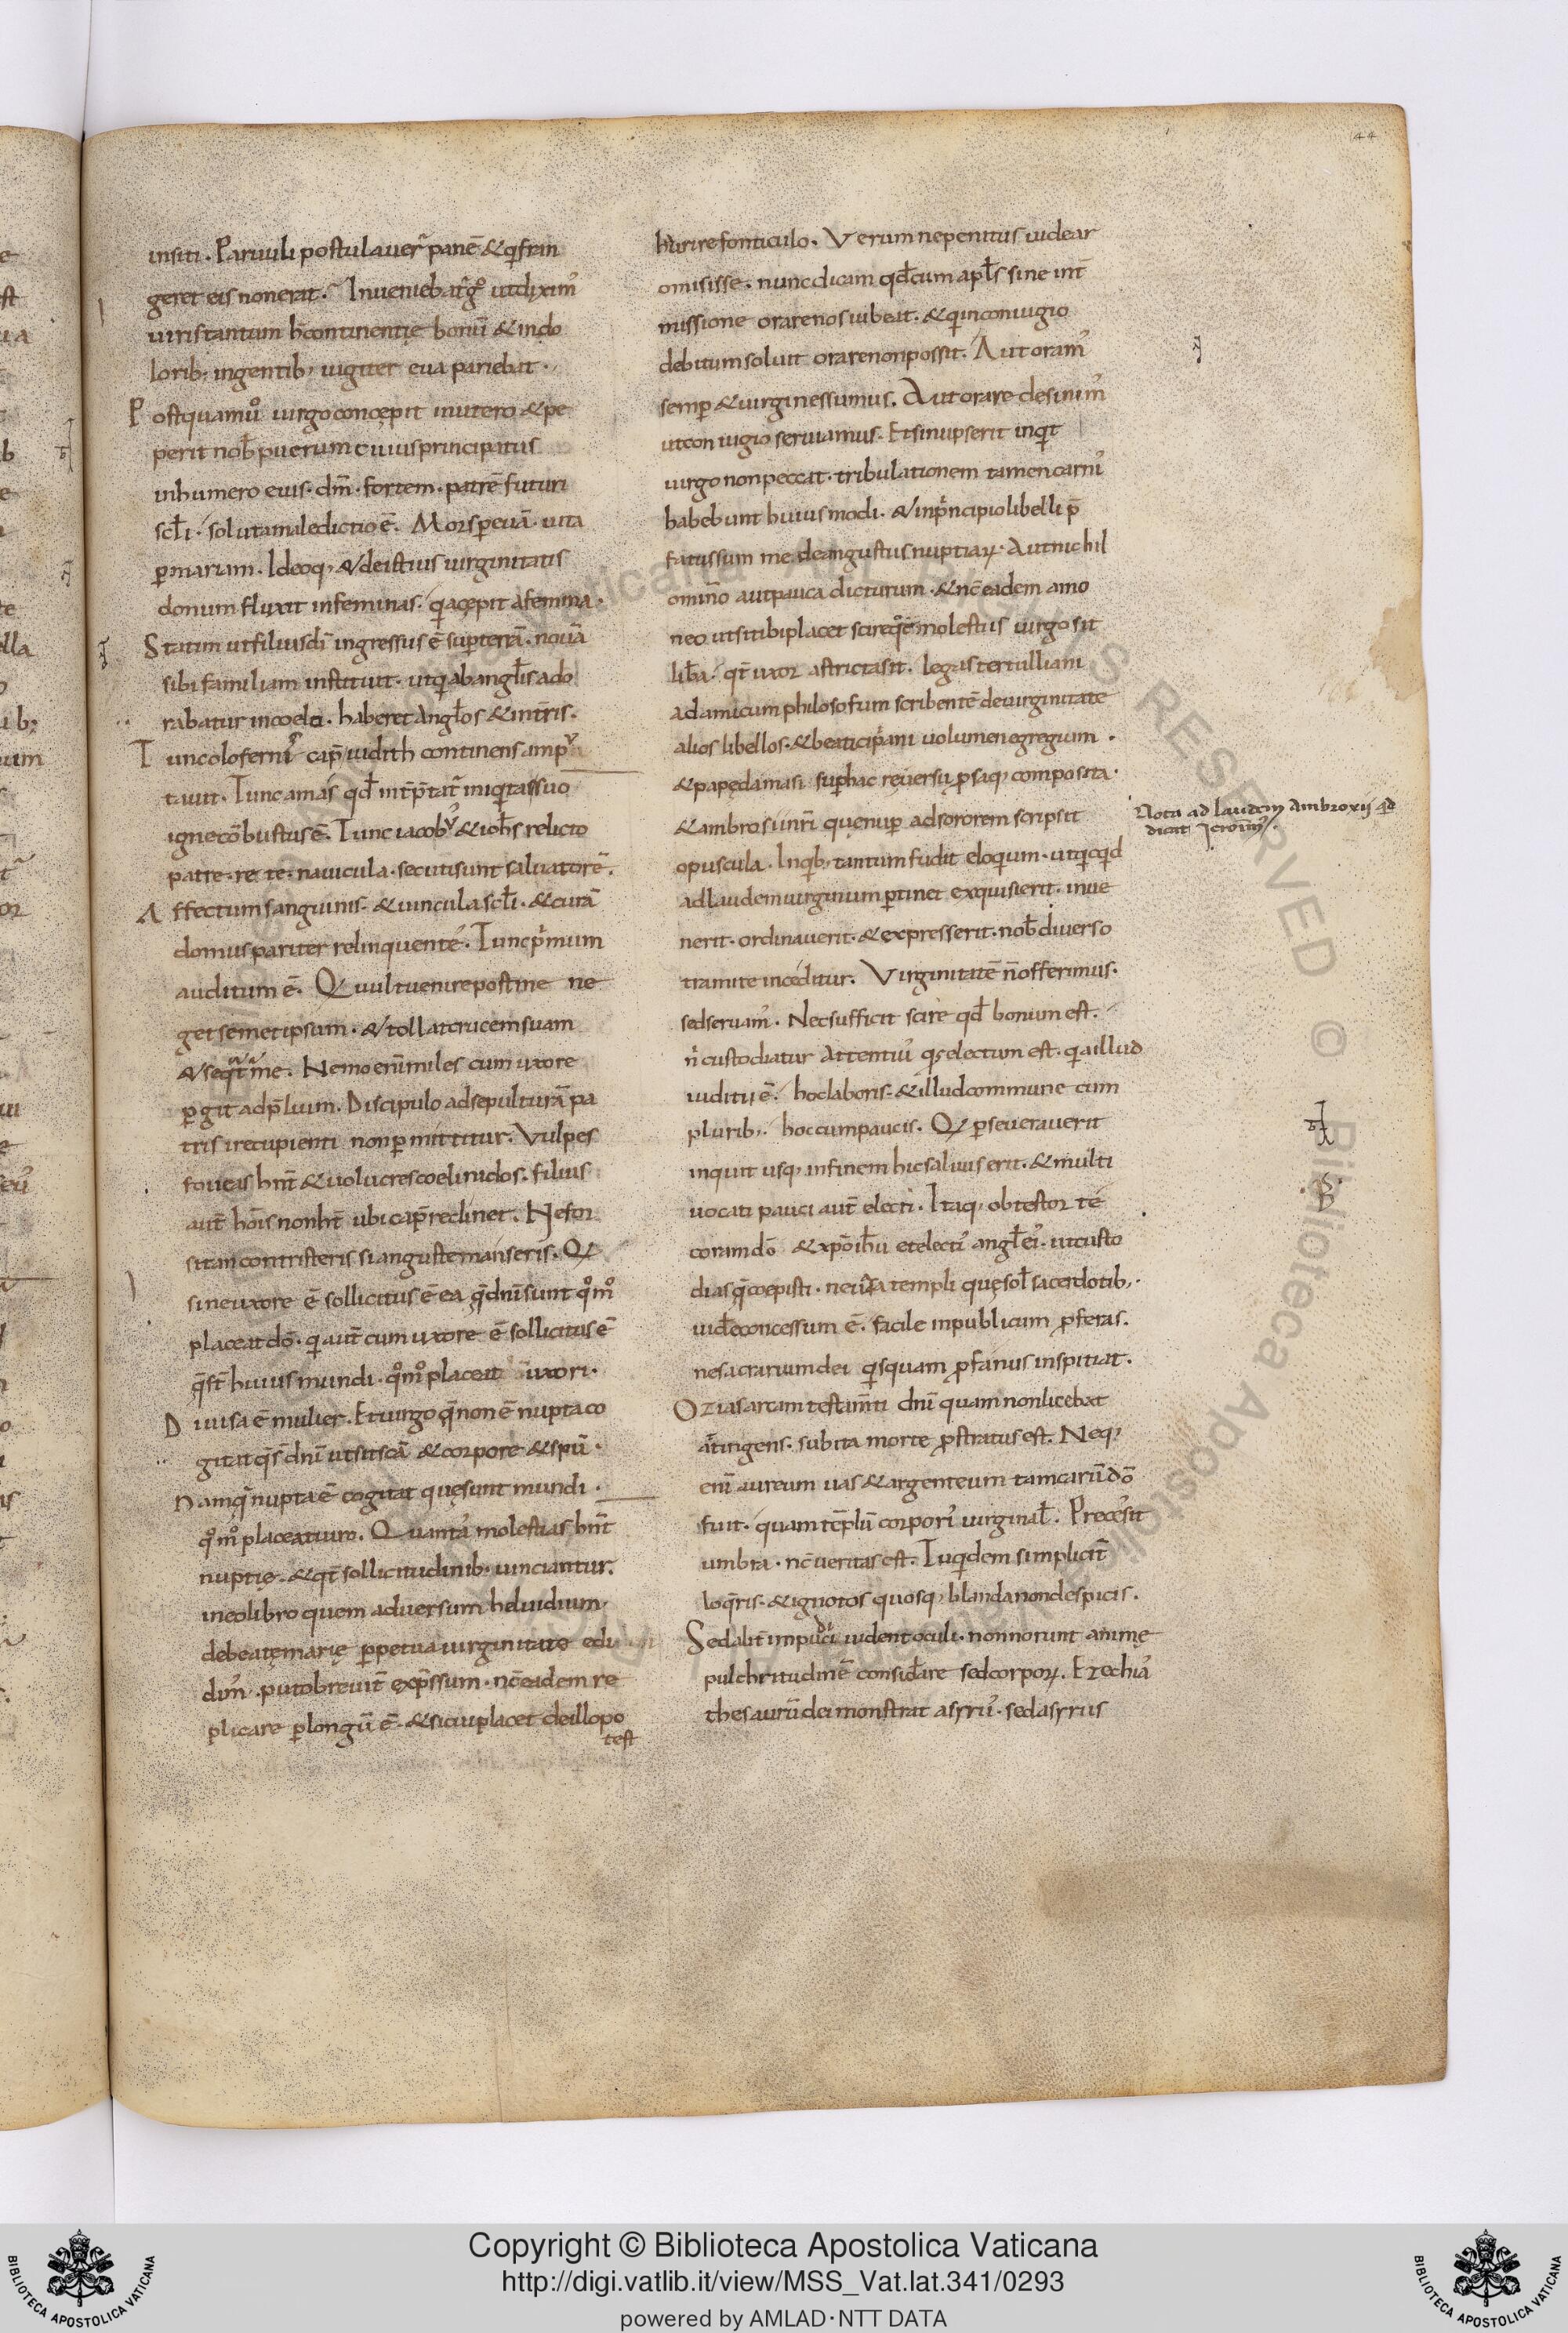 44
insiti. Paruuli postulauer̃ panē &qifran
geret eis nonerat. Inueniebat̃ gº utdixim᾽
uiristantum h̄continentię bonū &indo
lorib; ingentib; iugiter eua pariebat.
Postquamuº uirgoconcępit inutero &pe
perit nob̄ puerum cuiusprincipatus
inhumero eius. dm̄. fortem. patrē futuri
scłi. solutamaledictioē. Morsp̱euā. uita
p̱mariam. Ideoq; &deistius uirginitatis
donum fluxit infeminas. qiacępit afemina.
Statim utfiliusdī ingressus ē sup̱terrā. nouā
sibi familiam instituit. utqi abangłis ado
rabatur incoelo. haberet angłos &int̄ris.
Tuncoloferni᾽ cap̄ iudith continens amp᾽
tauit. Tuncamās qđ int̄p̄tat̃ iniqitassuo
ignecōbustusē. Tunc iacob᾽ &ioħs relicto
patre. re te. nauicula. secutisunt saluatorē.
Affectumsanguinis. &uincula scłi. &curā
domuspariter relinquente᾽. Tuncpⁱmum
auditum ē. Qui uultuenirepostme ne
getsemetipsum. &tollatcrucemsuam
&seqat̃ me. Nemo enī miles cum uxore
p̱git adp̄lium. Discipulo adsepulturā pa
tris irecupienti nonp̱mittitur. Vulpes
foueas hn̄t &uolucrescoelinidos. filius
aut̄ hoīs nonht̄ ubi cap̄reclinet. Nefor
sitancontristeris siangustemanseris. Qi
sineuxore ē sollicitus ē ea q̄dnīsunt qºmº
placeatdō. qi aut̄ cum uxore ē sollicitus ē
q̄st̄ huiusmundi. qºmº placeat uxori.
Diuisa ē mulier. Etuirgo q̄non ē nupta co
gitat q̄s dnī utsitscā &corpore &spū.
Namq̄ nupta ē cogitat quęsunt mundi.
qºmº placeatuiro. Quanta᾽ molestias hn̄t
nuptię. &qt̄ sollicitudinib; uinciantur.
ineolibro quem aduersum heluidium,
debeatęmarię p̱petua uirginitate edi
dim᾽. putobreuit̄ exp̄ssum. nc̄eadem re
plicare p̱longū ē. &sicuiplacet deillopo
test
haurirefonticulo. Verum nepenitus uidear
omisisse. nuncdicam qđcum apłs sine int̄
missione orarenosiubeat. &qi inconiugio
debitumsoluit orarenonpossit. Aut oram᾽
semp̱ &uirginessumus. Aut orare desinim᾽
utcon iugio seruiamus. Etsinupserit inqit
uirgo nonpeccat. tribulationem tamencarni᾽
habebunt huiusmodi. &inpⁱncipiolibelli p̄
fatussum me deangustiisnuptiaꝝ. Autnichil
omīno autpauca dicturum. &nc̄ eadem amo
neo utsitibiplacet scireqºt̄ molestiis uirgo sit
liƀa. qt̄ uxor astrictasit. legas tertulliani
adamicumphilosofum scribentē deuirginitate
alios libellos. &beaticipⁱani uolumenegregium.
&papędamasi sup̱hac reuersų p̱saq; composita.
&ambrosiinr̄i quęnup̱ adsororem scripsit
opuscula. Inqib; tantum fudit eloqium. utqicqid
adlaudemuirginum p̱tinet exquisierit. inue
nerit. ordinauerit. &expresserit. nob̄ diuerso
tramite inceditur. Virginitatē n̄ offerimus.
sedseruam᾽. Necsufficit scire qđ bonum est.
nⁱ custodiatur attentiu᾽ qs electum est. qiaillud
iuditii ē. hoclaboris. &illudcommune cum
plurib;. hoccumpaucis. Qi p̱seuerauerit
inquit usq; infinem hicsaluus erit. &multi
uocati pauci aut̄ electi. Itaq; obtestor te
coramdō &xp̄oiħu etelecti᾽ angłei᾽. utcusto
dias q̄coepisti. neuasa templi quęsoł sacerdotib;.
uiđeconcessum ē. facile inpublicum p̱feras.
nesacrariumdei qisquam p̱fanus inspitiat.
Oziasarcam testam̄ti dnī quam nonlicebat
attingens. subita morte p̱stratus est. Neq;
enī aureum uas &argenteum tamcarū dō
fuit. quam tēplū corpori᾽ uirginał. Precessit
umbra. nc̄ueritas est. Tuqidem simplicit̄
loq̄ris. &ignotos quosq; blandanondespicis.
Sedalit̄ impudici uident oculi. nonnorunt animę
pulchritudinē considƀare sedcorpoꝝ. Ezechia᾽
thesaurū dei monstrat asyriis. sedasyrius
Nota ad laudem Ambroxij qđ
dicat Jeronim᾽.
Copyright © Biblioteca Apostolica Vaticana
http://digi.vatlib.it/view/MSS_Vat.lat.341/0293
powered by AMLAD·NTT DATA
BIBLIOTECA APOSTOLICA VATICANA
BIBLIOTECA APOSTOLICA VATICANA